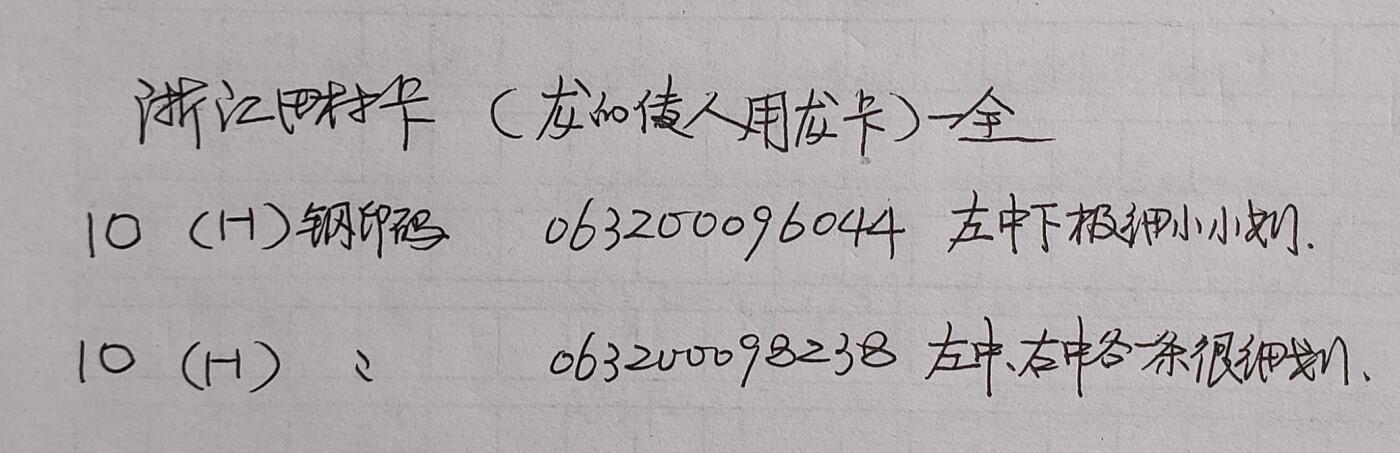 浙江田村卡 (龙的传人用龙卡)一全
10 (H) 钢印码 063200096044 左中下极细小小划.
10 (H) 〻 063200098238 左中、右中各一条很细划、